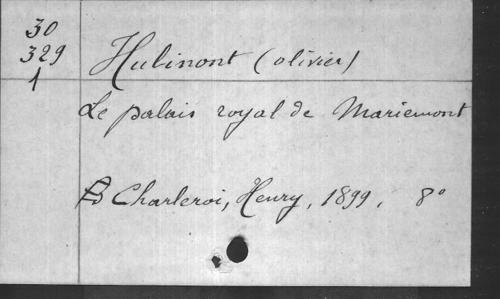 30
329
1
Hulinont (olivier)
Le palais royal de Mariemont
Charleroi, Henry, 1899, 8°